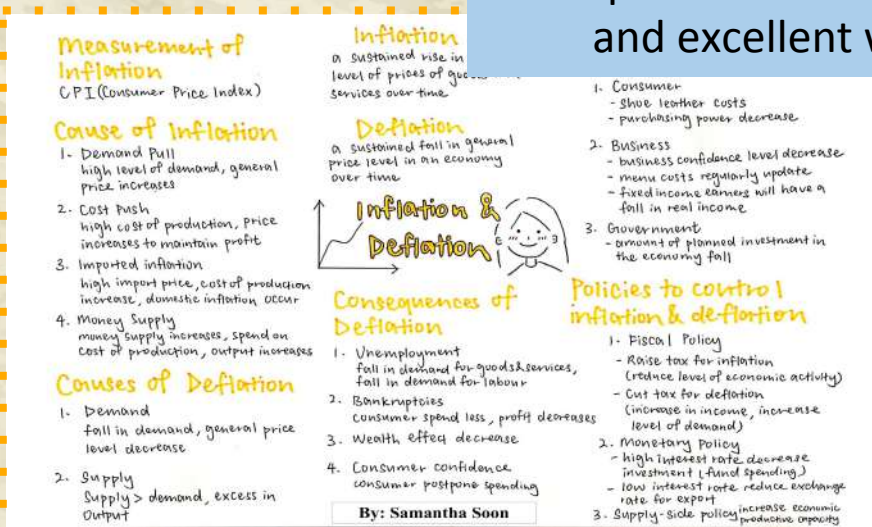 and excellent
Measurement of
Inflation
CPI (Consumer Price Index)
Cause of Inflation
1. Demand Pull
high level of demand, general
price increases
2. Cost Push
high cost of production, price
increases to maintain profit
3. Imported inflation
high import price, cost of production
increase, domestic inflation occur
4. Money Supply
money supply increases, spend on
cost of production, output increases
Causes of Deflation
1. Demand
fall in demand, general price
level decrease
2. Supply
Supply > demand, excess in
output
Inflation
a sustained rise in
level of prices of
services over time
Deflation
a sustained fall in general
price level in an economy
over time
Inflation &
Deflation
Consequences of
Deflation
1. Unemployment
fall in demand for goods & services,
fall in demand for labour
2. Bankruptcies
consumer spend less, profit decreases
3. Wealth effect decrease
4. Consumer confidence
consumer postpone spending
By: Samantha Soon
1. Consumer
- shoe leather costs
- purchasing power decrease
2. Business
- business confidence level decrease
- menu costs regularly update
- fixed income earners will have a
fall in real income
3. Government
- amount of planned investment in
the economy fall
Policies to control
inflation & deflation
1. Fiscal Policy
- Raise tax for inflation
(reduce level of economic activity)
- Cut tax for deflation
(increase in income, increase
level of demand)
2. Monetary Policy
- high interest rate decrease
investment (fund spending)
- low interest rate reduce exchange
rate for export
3. Supply-side policy increase economic
productive capacity